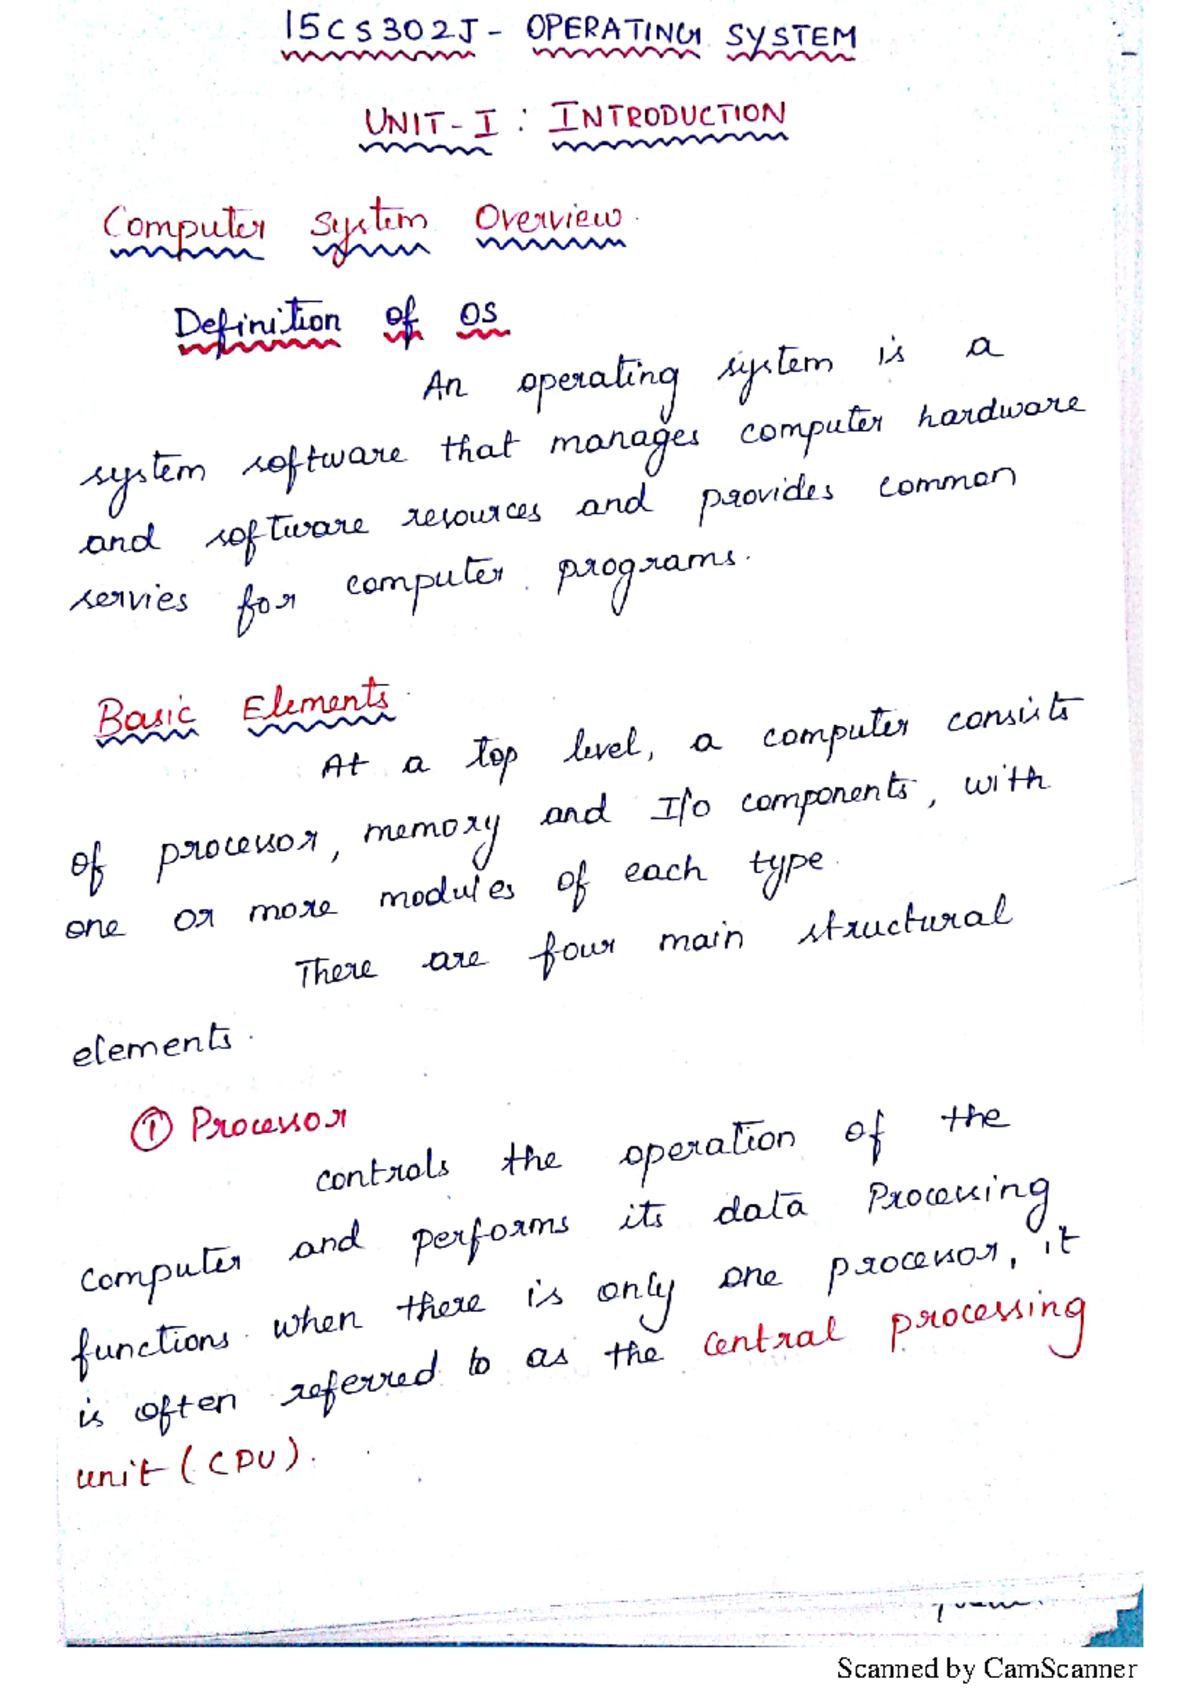 15CS302J - OPERATING SYSTEM
UNIT-I : INTRODUCTION
Computer System Overview.
Definition of OS
An operating system is a
system software that manages computer hardware
and software resources and provides common
servies for computer programs.
Basic Elements.
At a top level, a computer consists
of processor, memory and I/O components, with
one or more modules of each type.
There are four main structural
elements.
① Processor
controls the operation of the
computer and performs its data Processing
functions. when there is only one processor, it
is often referred to as the central processing
unit (CPU).
Scanned by CamScanner